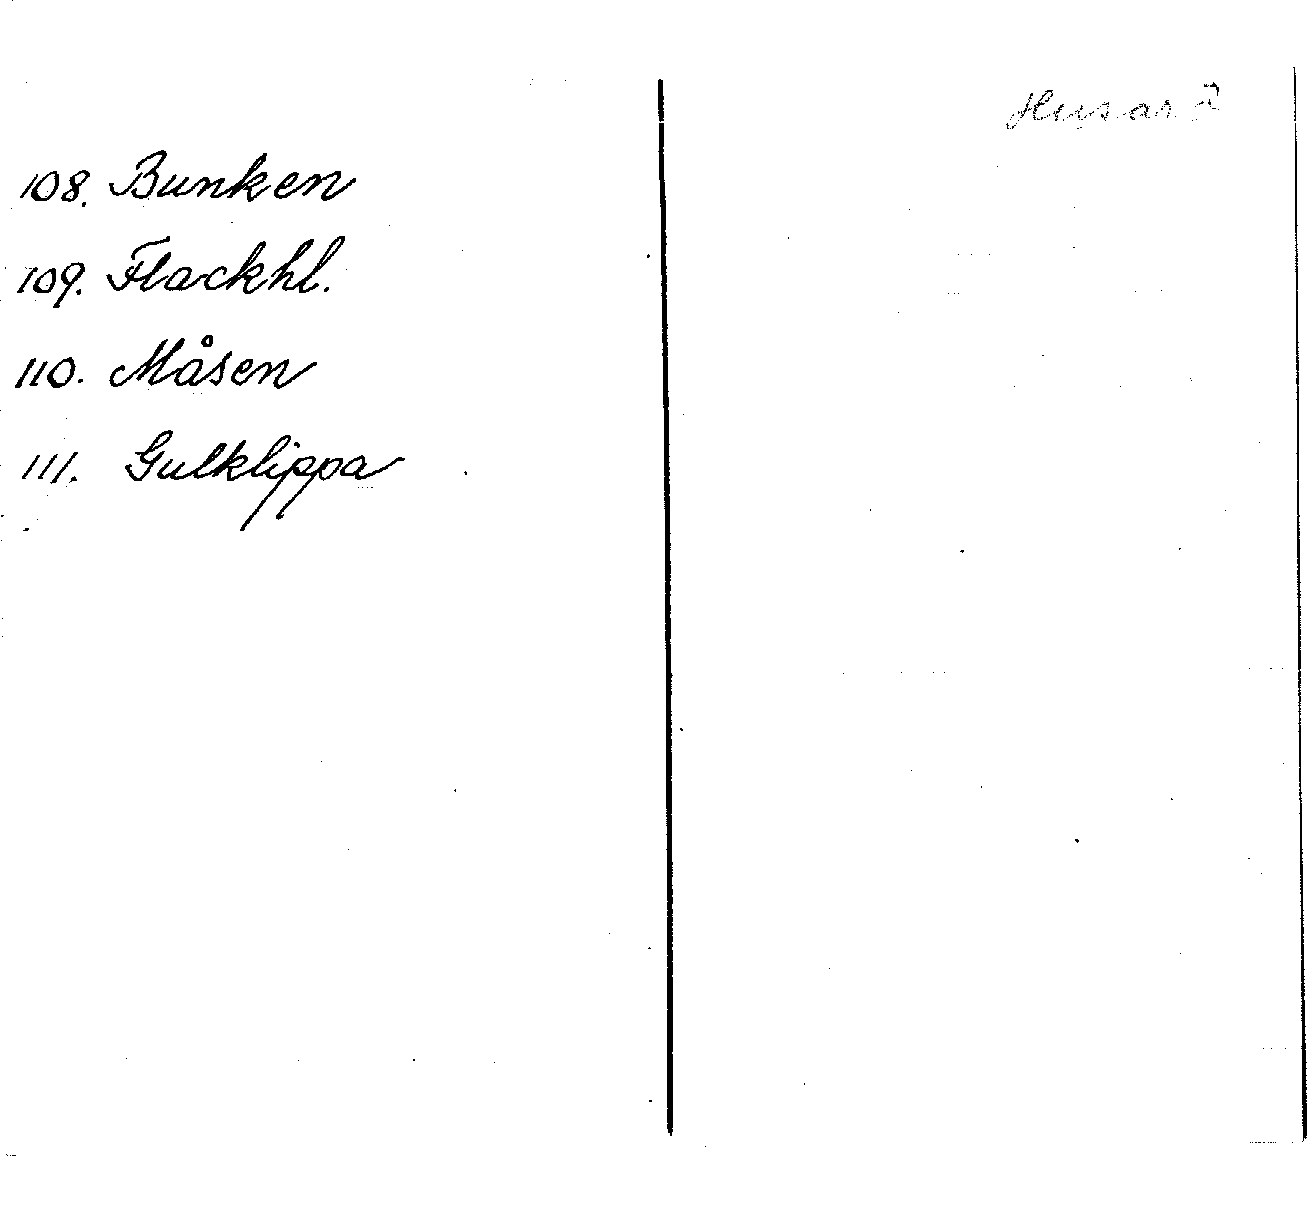 Husarö
108. Bunken
109. Flackhl.
110. Måsen
111. Gulklippa